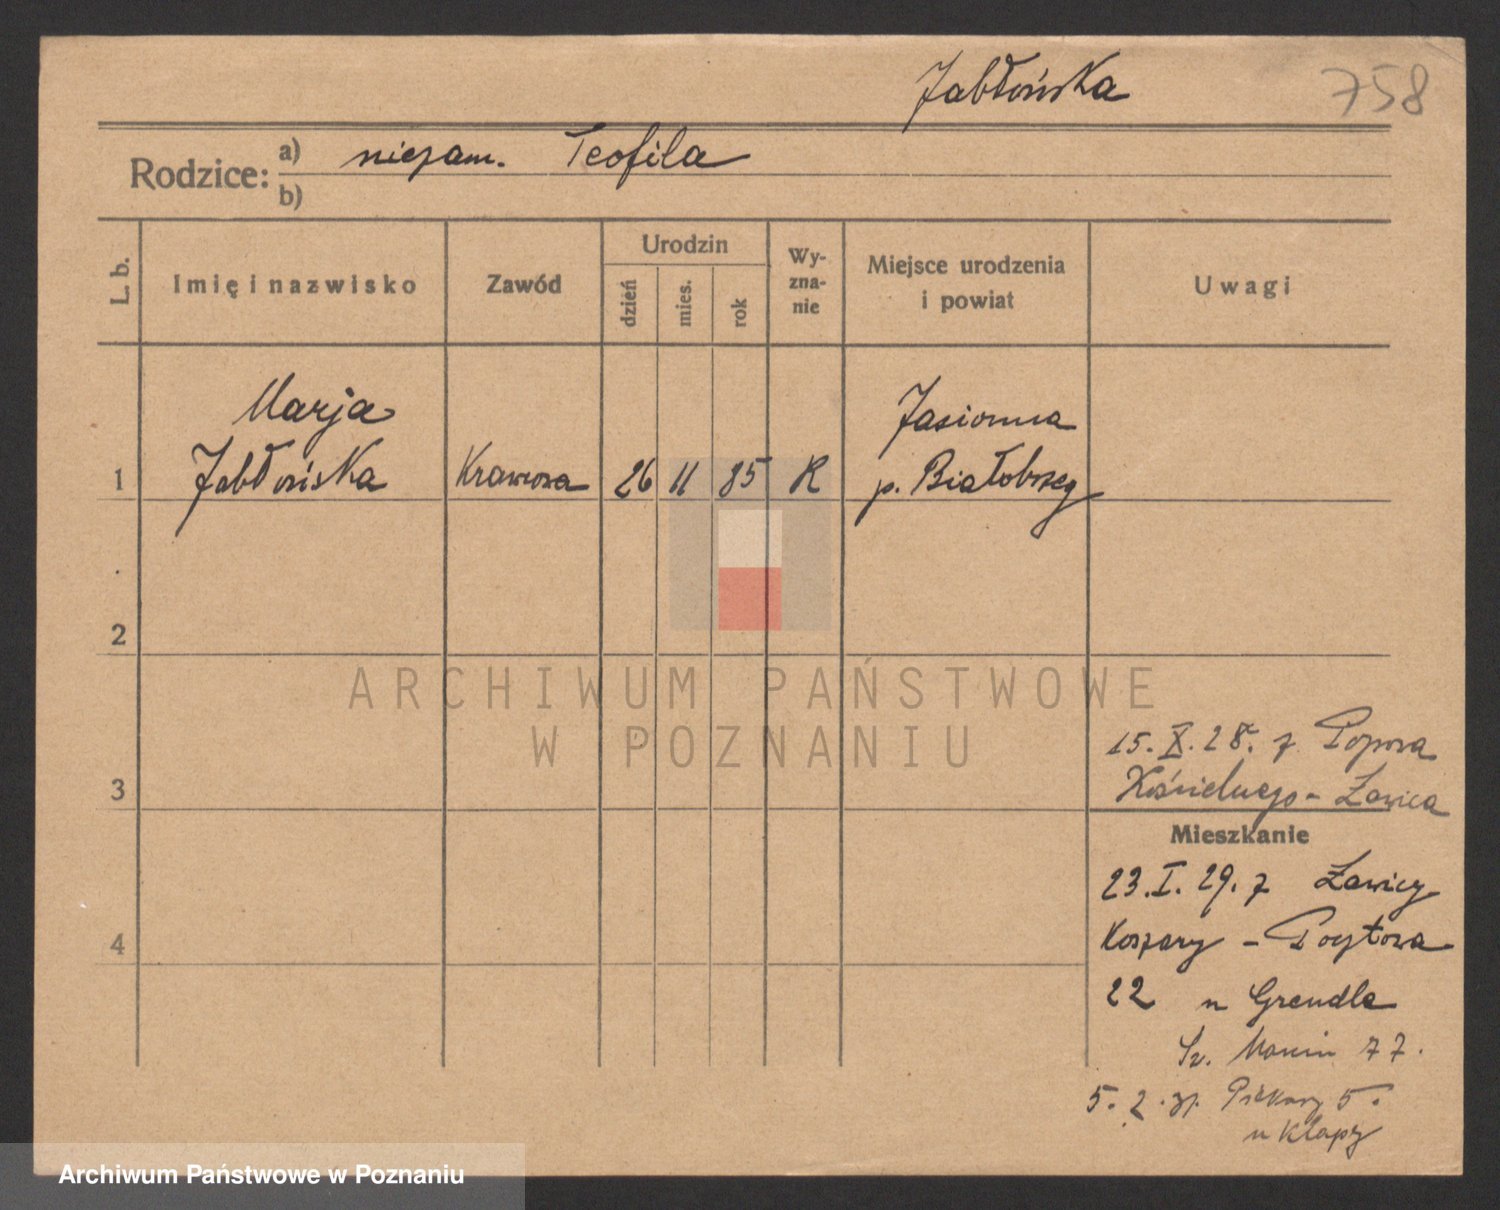 Jabłońska 758
Rodzice: a) niezam. Teofila
b)
L. b. Imię i nazwisko Zawód Urodzin dzień mies. rok Wy-zna-nie Miejsce urodzenia i powiat Uwagi
Marja Jasionna
1 Jabłońska Krawcowa 26 11 85 R p. Białobrzeg
2
ARCHIWUM PAŃSTWOWE
W POZNANIU
15. X. 28. z Popowa
3 Kościelnego - Ławica
Mieszkanie
23. I. 29. z Ławicy
4 Koszary - Pocztowa
22 u Grendla
Św. Marcin 77.
5. 2. 31. Piekary 5.
u Klapy
Archiwum Państwowe w Poznaniu